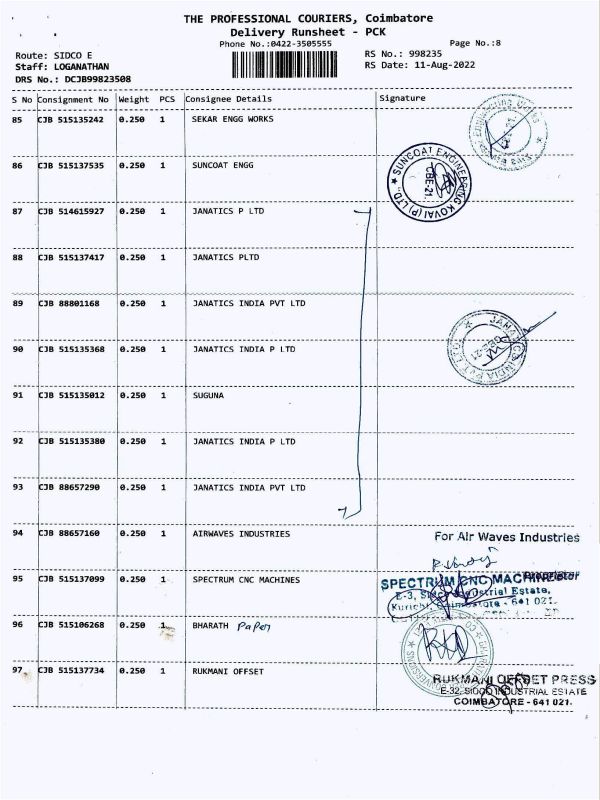 THE PROFESSIONAL COURIERS, Coimbatore
Delivery Runsheet - PCK
Phone No.:0422-3505555
Page No.:8
Route: SIDCO E
RS No.: 998235
Staff: LOGANATHAN
RS Date: 11-Aug-2022
DRS No.: DCJB99823508
S No Consignment No Weight PCS Consignee Details Signature
85 CJB 515135242 0.250 1 SEKAR ENGG WORKS
86 CJB 515137535 0.250 1 SUNCOAT ENGG
SUNCOAT ENGINEERING KOVAI (P) LTD.,
CBE-21.
87 CJB 514615927 0.250 1 JANATICS P LTD
88 CJB 515137417 0.250 1 JANATICS PLTD
89 CJB 88801168 0.250 1 JANATICS INDIA PVT LTD
90 CJB 515135368 0.250 1 JANATICS INDIA P LTD
JANATICS INDIA PVT LTD
91 CJB 515135012 0.250 1 SUGUNA
92 CJB 515135380 0.250 1 JANATICS INDIA P LTD
93 CJB 88657290 0.250 1 JANATICS INDIA PVT LTD
94 CJB 88657160 0.250 1 AIRWAVES INDUSTRIES
For Air Waves Industries
Proprietor
95 CJB 515137099 0.250 1 SPECTRUM CNC MACHINES
SPECTRUM CNC MACHINES
E-3, Sidco Industrial Estate,
Kurichi, Coimbatore - 641 021.
96 CJB 515106268 0.250 1 BHARATH Paper
97 CJB 515137734 0.250 1 RUKMANI OFFSET
RUKMANI OFFSET PRESS
E-32, SIDCO INDUSTRIAL ESTATE
COIMBATORE - 641 021.